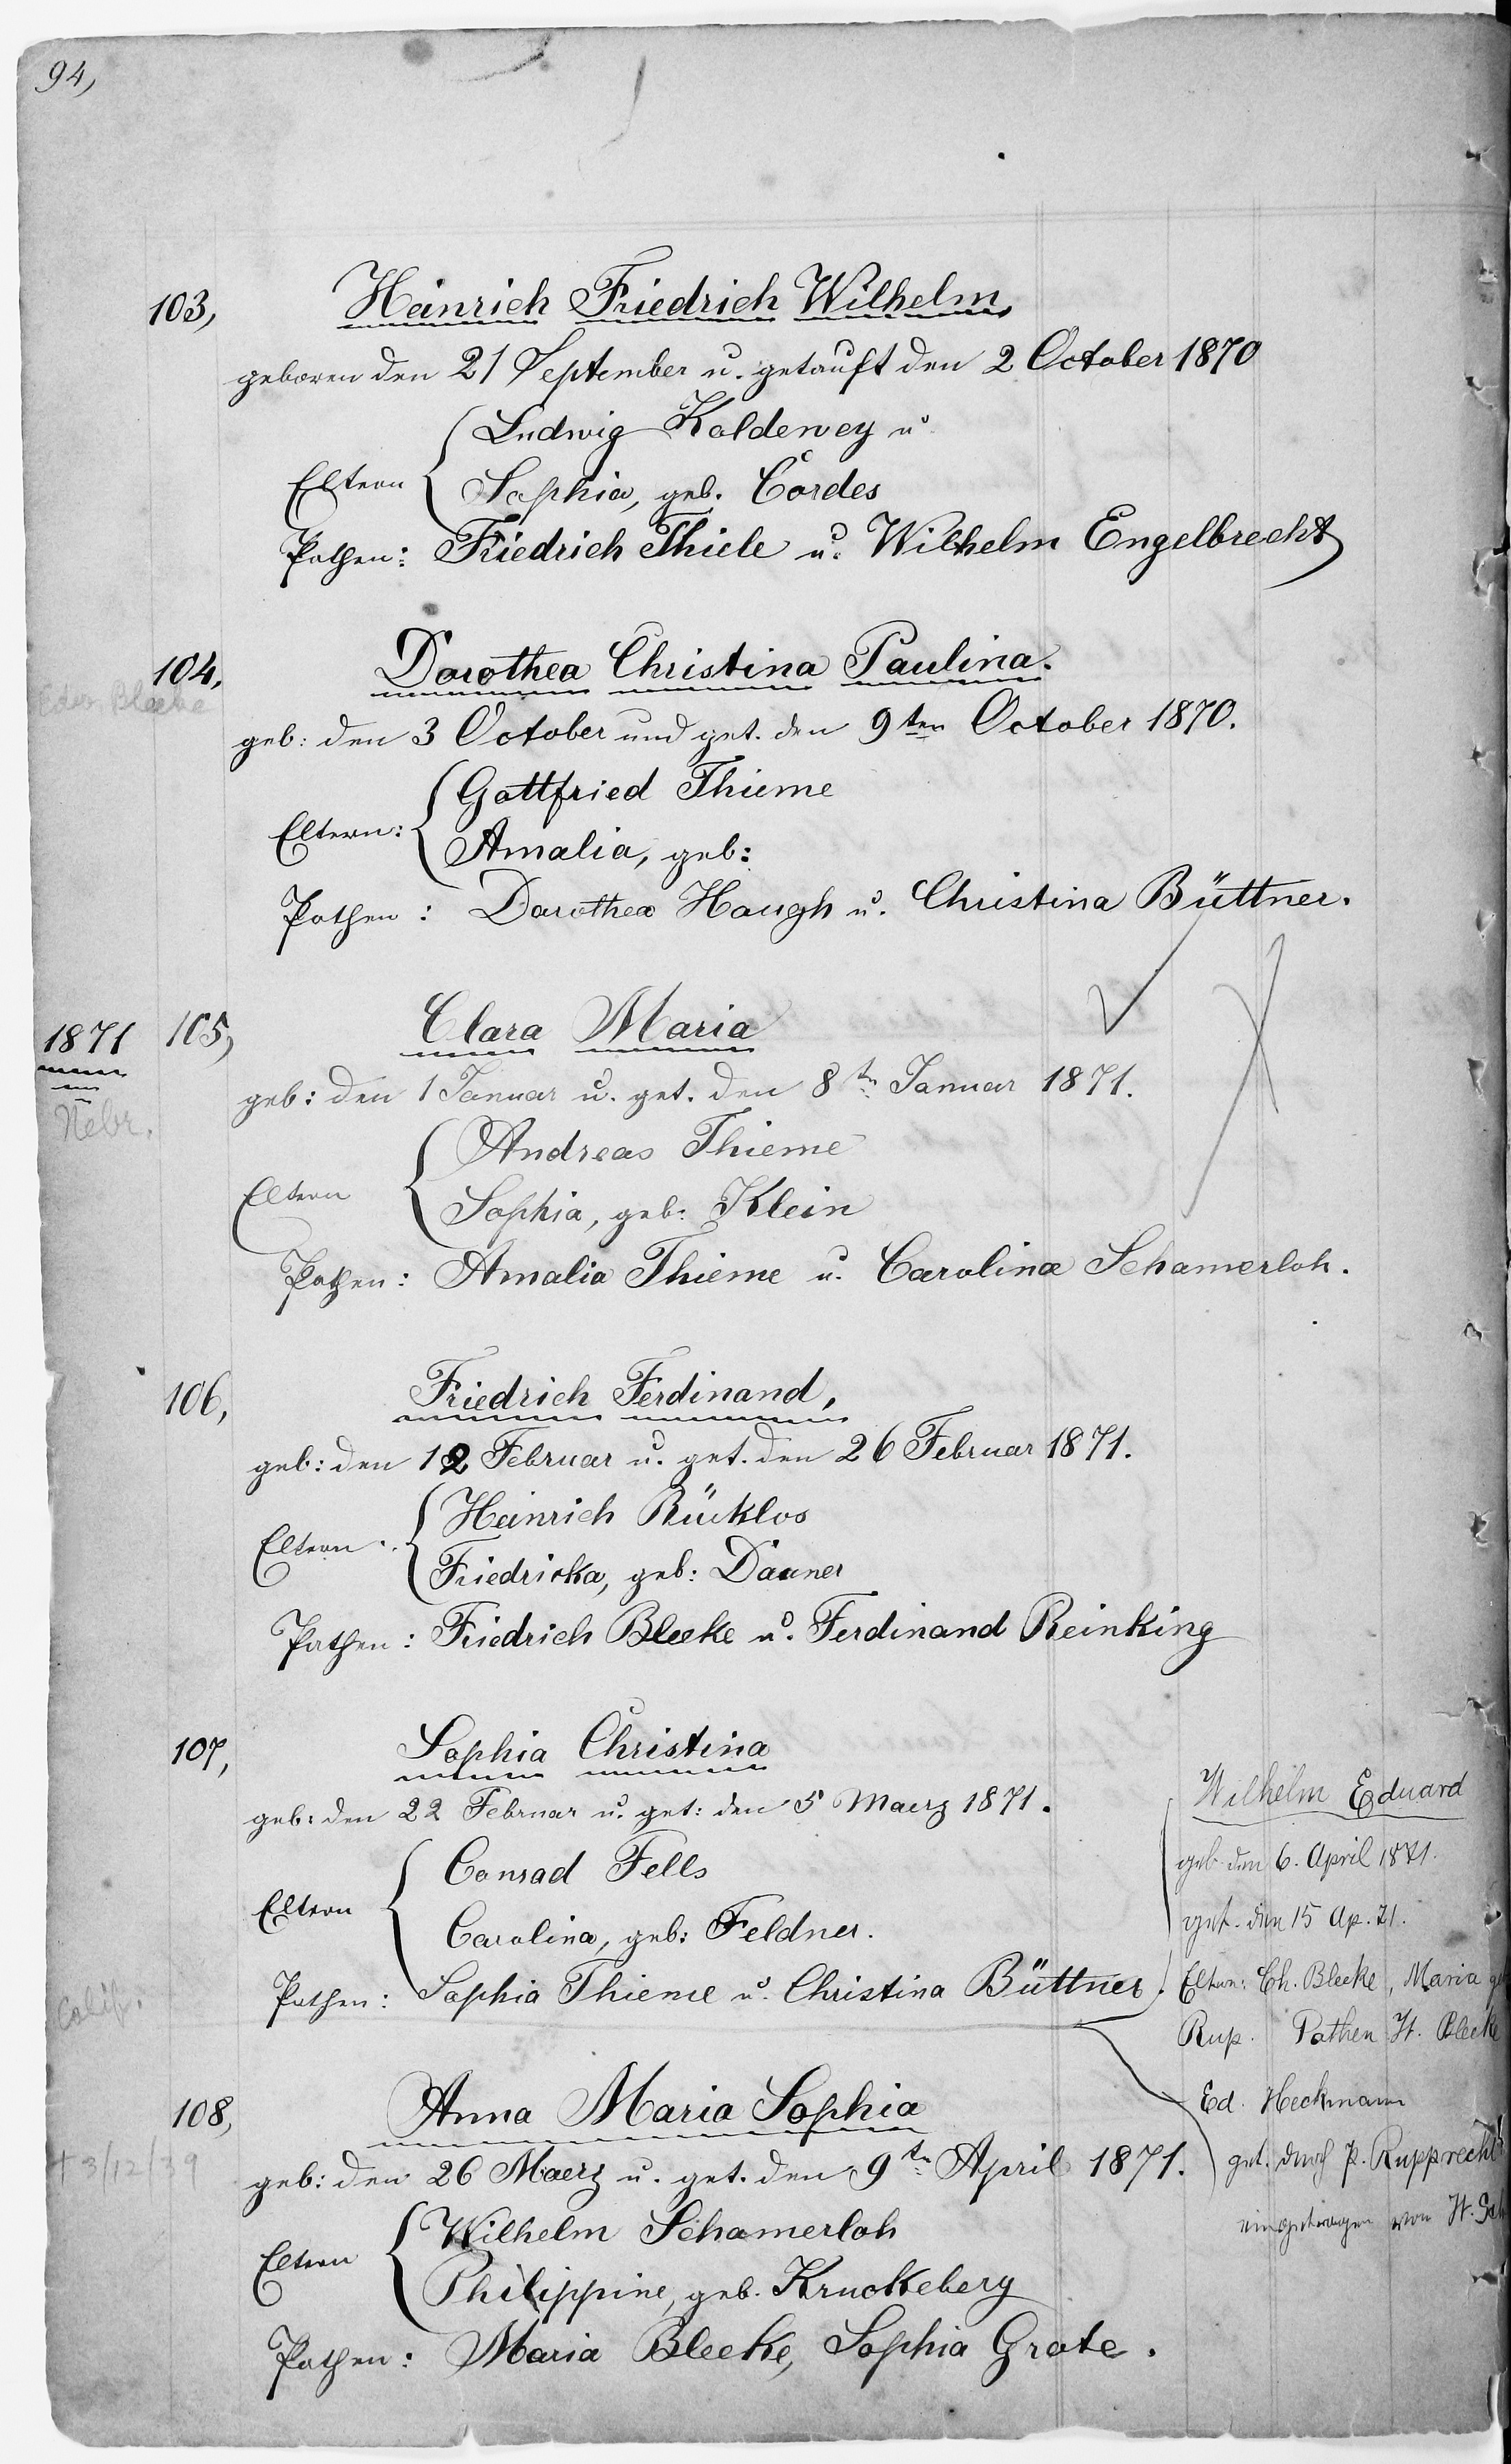 94,
103,
Heinrich Friedrich Wilhelm,
geboren den 21 September u. getauft den 2 October 1870
Ludwig Koldewey u
Eltern
Sophia, geb. Cordes
Pathen: Friedrich Thiele u. Wilhelm Engelbrecht
104,
Dorothea Christina Paulina.
Edw. Bleeke
geb: den 3 October und get. den 9ten October 1870.
Gottfried Thieme
Eltern:
Amalia, geb:
Pathen: Dorothea Haugh u. Christina Büttner.
1871
105,
Clara Maria
Nebr.
geb: den 1 Januar u. get. den 8tn Januar 1871.
Andreas Thieme
Eltern
Sophia, geb: Klein
Pathen: Amalia Thieme u. Carolina Schamerloh.
106,
Friedrich Ferdinand,
geb: den 12 Februar u. get. den 26 Februar 1871.
Heinrich Bücklos
Eltern:
Friedricka, geb: Dauner
Pathen: Friedrich Bleeke u. Ferdinand Reinking
107,
Sophia Christina
geb: den 22 Februar u. get: den 5 Maerz 1871.
Conrad Fells
Eltern
Carolina, geb: Feldner.
Pathen: Sophia Thieme u. Christina Büttner.
Calif.
Wilhelm Eduard
geb. den 6. April 1871.
get. den 15 Ap. 71.
Eltern: Ch. Bleeke, Maria
Rup. Pathen H. Bleeke
Ed. Heckmann
get. durch P. Rupprecht
eingetragen von H.
108,
Anna Maria Sophia
† 3/12/39
geb: den 26 Maerz u. get. den 9tn April 1871.
Wilhelm Schamerloh
Eltern
Philippine, geb. Kruckeberg
Pathen: Maria Bleeke, Sophia Grote.